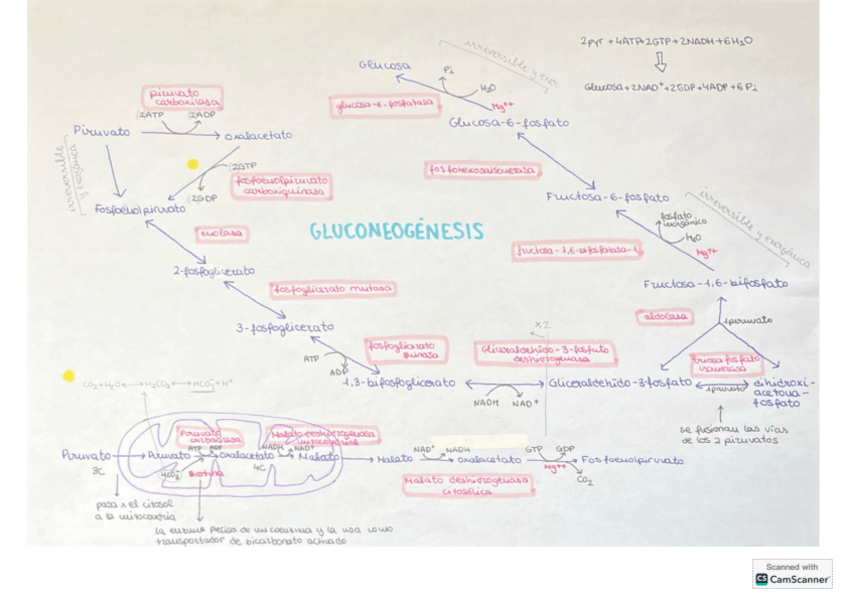 2pyr + 4ATP + 2GTP + 2NADH + 6H₂O
Glucosa + 2NAD⁺ + 2GDP + 4ADP + 6Pi
irreversible y exor
Glucosa
Pi
H₂O
Mg⁺⁺
glucosa-6-fosfatasa
Glucosa-6-fosfato
piruvato
carboxilasa
(2ATP
(2ADP
Piruvato
oxalacetato
irreversible
y exorgónica
(2GTP
(2GDP
fosfoenolpiruvato
carboxiquinasa
Fosfoenolpiruvato
fosfohexosaisomerasa
Fructosa-6-fosfato
irreversible y exorgónica
fosfato
inorgánico
H₂O
Mg⁺⁺
enolasa
GLUCONEOGÉNESIS
fructosa-1,6-bifosfatasa-1
2-fosfoglicerato
Fructosa-1,6-bifosfato
fosfoglicerato mutasa
aldolasa
1piruvato
3-fosfoglicerato
x2
fosfoglicerato
quinasa
Gliceraldehído-3-fosfato
deshidrogenasa
triosa fosfato
isomerasa
ATP
ADP
1,3-bifosfoglicerato
NADH
NAD⁺
Gliceraldehído-3-fosfato
1piruvato
dihidroxi-
acetona-
fosfato
CO₂+H₂O
H₂CO₃
HCO₃⁻ + H⁺
se fusionan las vías
de los 2 piruvatos
Piruvato
carboxilasa
Malato deshidrogenasa
mitocondrial
Piruvato
3C
Piruvato
ATP
ADP
HCO₃⁻
Biotina
Oxalacetato
4C
NADH
NAD⁺
Malato
Malato
NAD⁺
NADH
oxalacetato
GTP
GDP
Mg⁺⁺
CO₂
Fosfoenolpiruvato
Malato deshidrogenasa
citosólica
pasa x el citosol
a la mitocondria
la enzima precisa de una coenzima y la usa como
transportador de bicarbonato activado
Scanned with
CS CamScanner